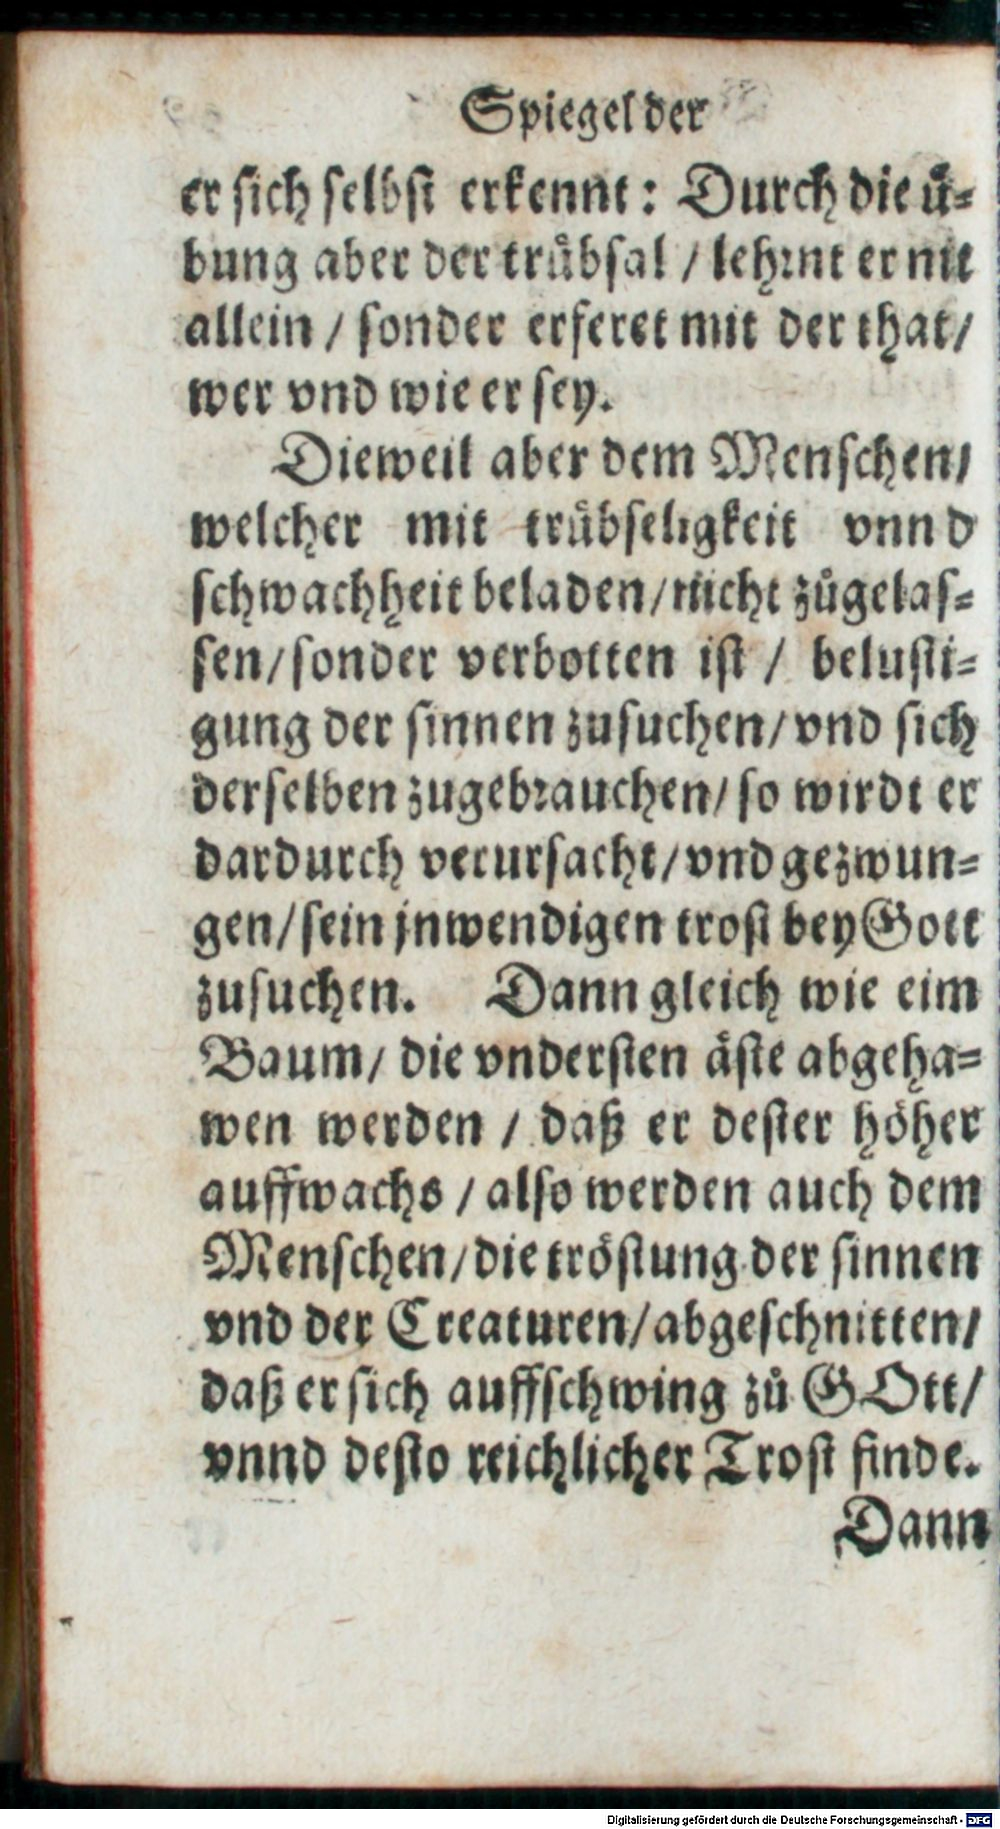 Spiegel der
er sich selbst erkennt: Durch die ů-
bung aber der trůbsal / lehrnt er nit
allein / sonder erferet mit der that /
wer vnd wie er sey.
Dieweil aber dem Menschen /
welcher mit trůbseligkeit vnnd
schwachheit beladen / nicht zůgelas-
sen / sonder verbotten ist / belusti-
gung der sinnen zusuchen / vnd sich
derselben zugebrauchen / so wirdt er
dardurch verursacht / vnd gezwun-
gen / sein jnwendigen trost bey Gott
zusuchen. Dann gleich wie eim
Baum / die vndersten äste abgeha-
wen werden / daß er dester höher
auffwachs / also werden auch dem
Menschen / die tröstung der sinnen
vnd der Creaturen / abgeschnitten /
daß er sich auffschwing zů GOtt /
vnnd desto reichlicher Trost finde.
Dann
Digitalisierung gefördert durch die Deutsche Forschungsgemeinschaft - DFG